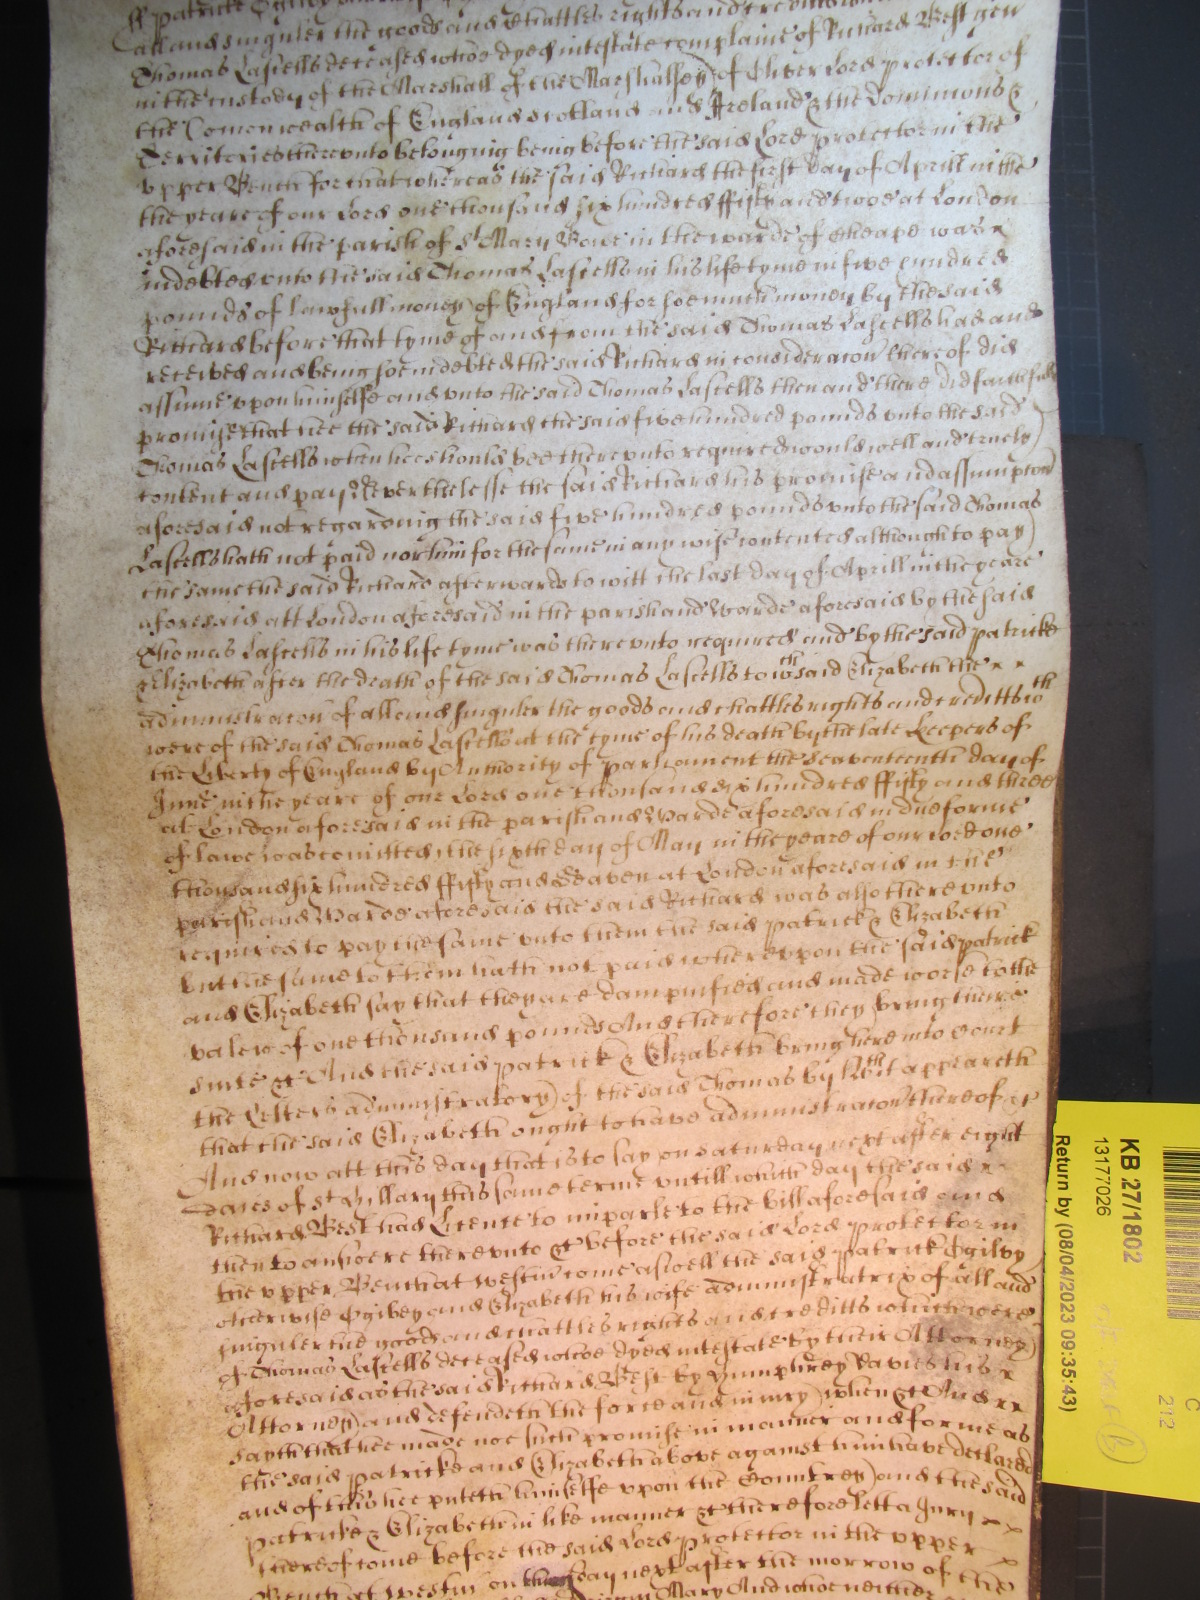 ff Patricke Ogilvy
all and singuler the goods and Chattles rights and creditts
Thomas Lascells deceased whoe dyed intestate complaine of Richard Best gen
in the custody of the Marshall of the Marshallsey of Oliver Lord Protector of
the Comonwealth of England Scotland and Ireland & the Dominions &
Territories therevnto belonging being before the said Lord Protector in the
vpper Bench for that whereas the said Richard the first day of Aprill in the
the yeare of our Lord one thousand six hundred ffifty and twoe at London
aforesaid in the parish of St Mary Bowe in the warde of Cheape was
indebted vnto the said Thomas Lascells in his life tyme in five hundred
pounds of lawfull money of England for soe much money by the said
Richard before that tyme of and from the said Thomas Lascells had and
received and being soe indebted the said Richard in consideracon thereof did
assume vpon himselfe and vnto the said Thomas Lascells then and there did faithfully
promise that hee the said Richard the said five hundred pounds vnto the said
Thomas Lascells when hee should bee therevnto required would well and truely
content and pay Neverthelesse the said Richard his promise and assumpcon
aforesaid not regarding the said five hundred pounds vnto the said Thomas
Lascells hath not paid nor him for the same in any wise contented although to pay
the same the said Richard afterwards to witt the last day of Aprill in the yeare
aforesaid att London aforesaid in the parish and Warde aforesaid by the said
Thomas Lascells in his life tyme was therevnto required and by the said Patricke
& Elizabeth after the death of the said Thomas Lascells to wch said Elizabeth the
administracon of all and singuler the goods and chattles rights and creditts wch
were of the said Thomas Lascells at the tyme of his death by the late Keepers of
the Liberty of England by Authority of Parliament the seaventeenth day of
June in the yeare of our Lord one thousand six hundred ffifty and three
at London aforesaid in the parish and Warde aforesaid in due forme
of lawe was comitted the sixth day of May in the yeare of our Lord one
thousand six hundred ffifty and seaven at London aforesaid in the
parish and Warde aforesaid the said Richard was also therevnto
required to pay the same vnto them the said Patrick & Elizabeth
but the same to them hath not paid wherevpon the said Patrick
and Elizabeth say that they are dampnified and made worse to the
valew of one thousand pounds And therefore they bring theire
suite &c And the said Patrick & Elizabeth bring here into Court
the Letters administratory of the said Thomas by wch it appeareth
that the said Elizabeth ought to have administracon thereof &c
And now att this day that is to say on Saturday next after eight
daies of St Hillary this same terme vntill which day the said
Richard Best had Licence to imparle to the bill aforesaid and
then to answere therevnto &c before the said Lord Protector in
the vpper Bench at Westm come aswell the said Patrick Ogilvy
otherwise Ogibey and Elizabeth his wife administratrix of all and
singuler the goods and chattles rights and creditts which were
of Thomas Lascells deceased whoe dyed intestate by their Attorney
aforesaid as the said Richard Best by Humphrey Davies his
Attorney and defendeth the force and iniury when &c And
sayth that hee made noe such promise in manner and forme as
the said Patricke and Elizabeth above against him have declared
and of this hee putteth himselfe vpon the Countrey and the said
Patricke & Elizabeth in like manner &c therefore lett a Jury
thereof come before the said Lord Protector in the vpper
Bench at Westm on day next after the morrow of the
Mary And whoe neither
KB 27/1802
13177026
Return by (08/04/2023 09:35:43)
C
212